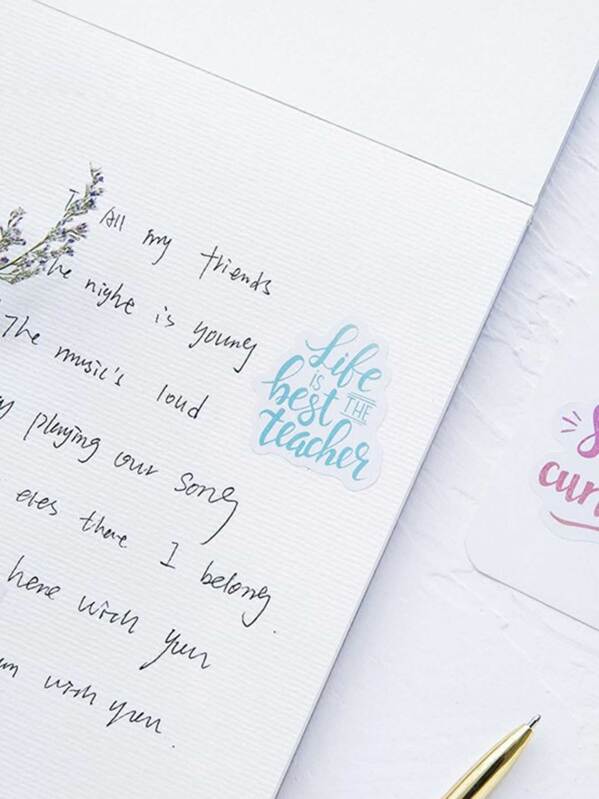 All my friends
he night is young
The music's loud
playing our song
eyes there I belong.
here with you
with you.
Life
is
best THE
teacher
cur